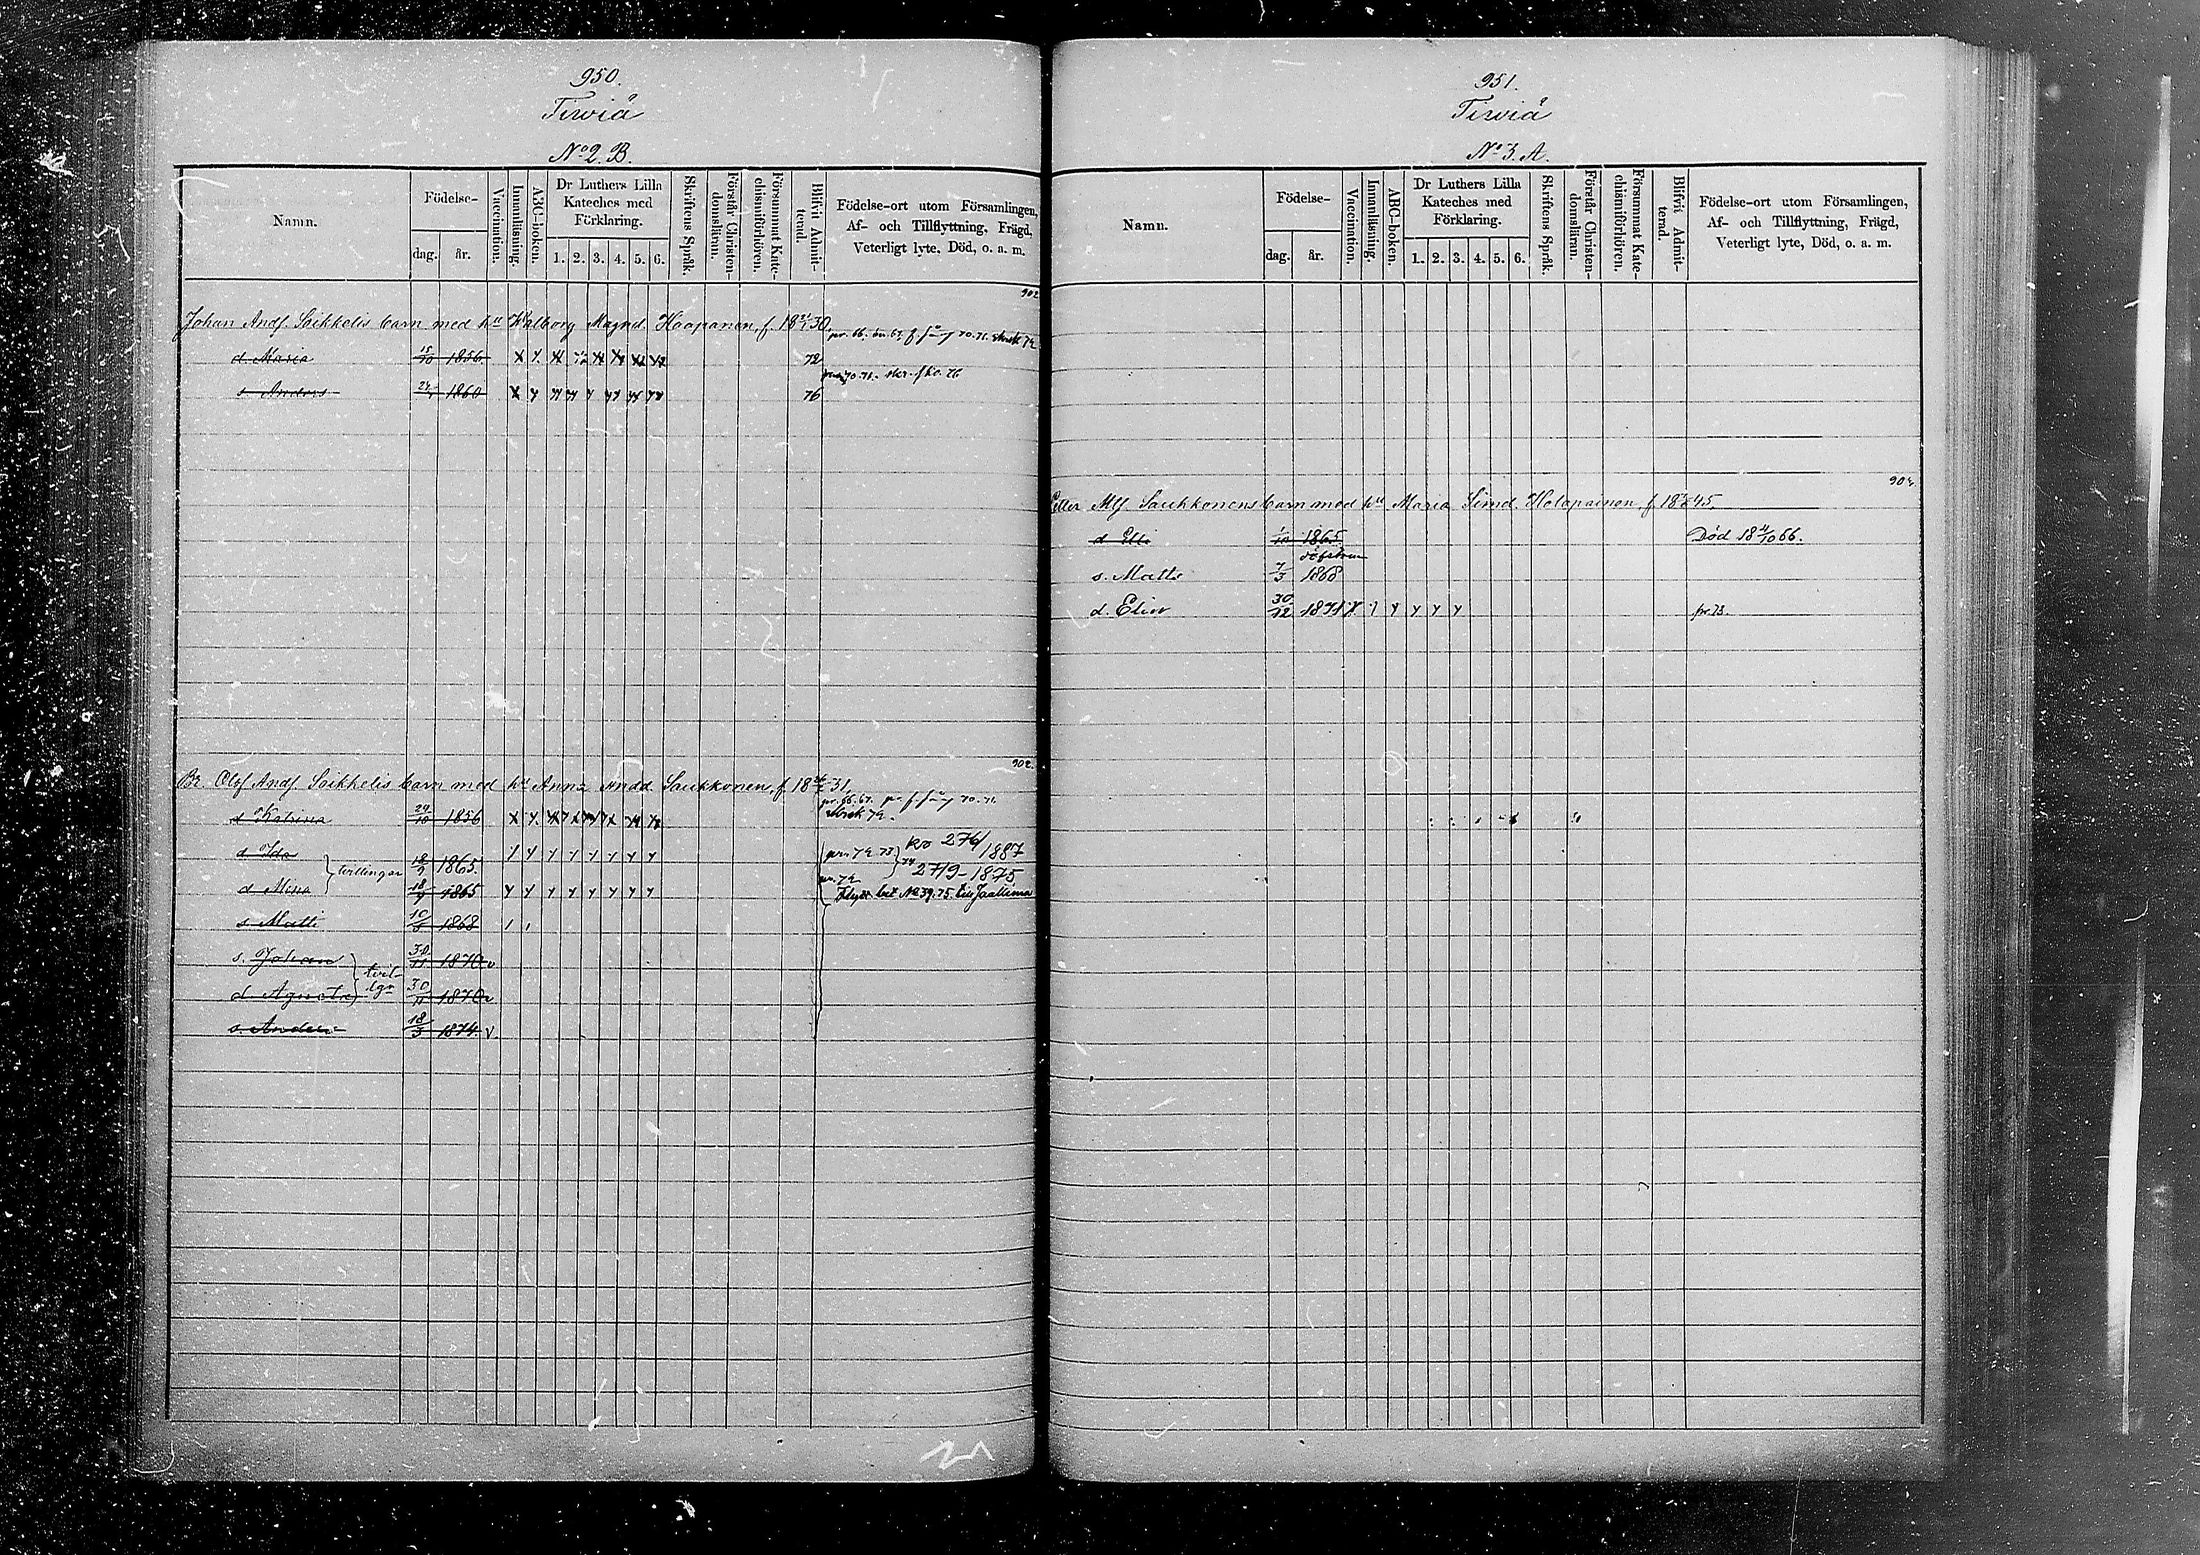 950.
Tirviä
No 2. B.
Namn.
Födelse-
dag.
år.
Vaccination.
Innanläsning.
ABC-boken.
Dr Luthers Lilla
Kateches med
Förklaring.
1. 2. 3. 4. 5. 6.
Skriftens Språk.
Förstår Christen-
domsläran.
Försummat Kate-
chismiförhören.
Blifvit Admit-
terad.
Födelse-ort utom Församlingen,
Af- och Tillflyttning, Frägd,
Veterligt lyte, Död, o. a. m.
902
Johan Andf. Saikkelis barn med hu Walborg Magnd. Haapanen, f. 18 30.
d. Maria 15/10 1856 72
s. Anders 1860 76
902.
Br. Olof Andf. Saikkelis barn med hu Anna Andd. Saukkonen, f. 18 31.
pr. 66. 67. 70. 71.
d. Katrina 29/10 1856
d. Ida 18/9 1865. pr. 72 73 276/1887
tvillingar 2719-1875
d. Mina 18/9 1865 pr. 72
No 39. 75. Jaakkima
s. Matti 10/5 1868
s. Johan 30/11 1870 v
tvil-
lgr
d. Agneta 30/11 1870 v
s. Anders 18/3 1874. v.
951.
Tirviä
No 3. A.
Namn.
Födelse-
dag.
år.
Vaccination.
Innanläsning.
ABC-boken.
Dr Luthers Lilla
Kateches med
Förklaring.
1. 2. 3. 4. 5. 6.
Skriftens Språk.
Förstår Christen-
domsläran.
Försummat Kate-
chismiförhören.
Blifvit Admit-
terad.
Födelse-ort utom Församlingen,
Af- och Tillflyttning, Frägd,
Veterligt lyte, Död, o. a. m.
904.
Petter Mtf. Saukkonens barn med hu Maria Simd. Holopainen, f. 18 45.
d. Elli 1/10 1865 Död 18 4/10 66.
s. Matts 7/3 1868
d. Elin 30/12 1871 pr. 73.